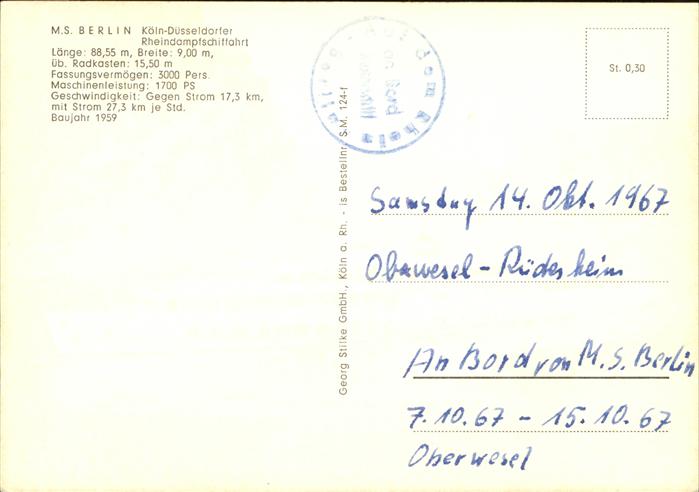 M.S. BERLIN Köln-Düsseldorfer
Rheindampfschiffahrt
Länge: 88,55 m, Breite: 9,00 m,
üb. Radkasten: 15,50 m
Fassungsvermögen: 3000 Pers.
Maschinenleistung: 1700 PS
Geschwindigkeit: Gegen Strom 17,3 km,
mit Strom 27,3 km je Std.
Baujahr 1959
Auf dem Rhein
an Bord
St. 0,30
Georg Stilke GmbH., Köln a. Rh. - is Bestellnr. S.M. 124-f
Samstag 14. Okt. 1967
Oberwesel - Rüdesheim
An Bord von M.S. Berlin
7.10.67 - 15.10.67
Oberwesel